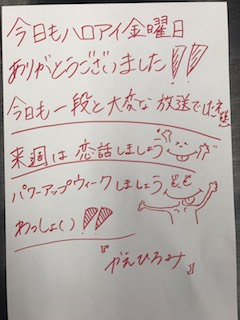 今日もハロアイ金曜日
ありがとうございました!!
今日も一段と大変な放送でした笑
来週は恋話しましょう
パワーアップウィークしましょう
わっしょい!!
『かえひろみ』